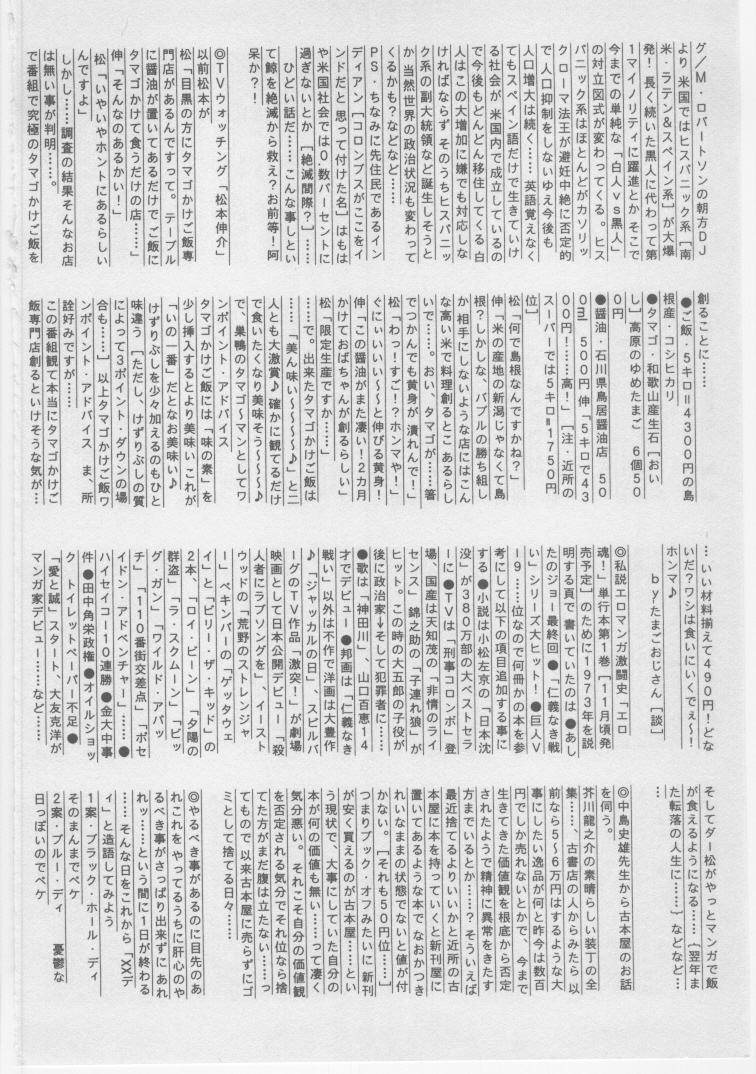 グ／Ｍ・ロバートソンの朝方ＤＪ
より 米国ではヒスパニック系［南
米・ラテン＆スペイン系］が大爆
発！長く続いた黒人に代わって第
１マイノリティに躍進とか そこで
今までの単純な「白人ｖｓ黒人」
の対立図式が変わってくる。ヒス
パニック系はほとんどがカソリッ
クローマ法王が避妊中絶に否定的
で人口抑制をしないゆえ今後も
人口増大は続く……英語覚えなく
てもスペイン語だけで生きていけ
る社会が 米国内で成立しているの
で今後もどんどん移住してくる 白
人はこの大増加に嫌でも対応しな
ければならず そのうちヒスパニッ
ク系の副大統領など誕生しそうと
か 当然世界の政治状況も変わって
くるかも？などなど……
ＰＳ・ちなみに先住民であるイン
ディアン［コロンブスがここをイ
ンドだと思って付けた名］はもは
や米国社会では０・数パーセントに
過ぎないとか［絶滅間際？］……
ひどい話だ……こんな事しとい
て鯨を絶滅から救え？お前等！阿
呆か？！
◎ＴＶウォッチング「松本伸介」
以前松本が
松「目黒の方にタマゴかけご飯専
門店があるんですって。テーブル
に醤油が置いてあるだけでご飯に
タマゴかけて食うだけの店……」
伸「そんなのあるかい！」
松「いやいやホントにあるらしい
んですよ」
しかし……調査の結果そんなお店
は無い事が判明……。
で番組で究極のタマゴかけご飯を
創ることに……
●ご飯・５キロ＝４３００円の島
根産・コシヒカリ
●タマゴ・和歌山産生石［おい
し］高原のゆめたまご ６個５０
０円
●醤油・石川県鳥居醤油店 ５０
０ml ５００円 伸「５キロで４３
００円！……高！」［注・近所の
スーパーでは５キロ＝１７５０円
位］
松「何で島根なんですかね？」
伸「米の産地の新潟じゃなくて島
根？しかしな、バブルの勝ち組し
か相手にしないような店にはこん
な高い米で料理創るとこあるらし
いで……。おい、タマゴが……箸
でつかんでも黄身が潰れんで！」
松「わっ！すご！？ホンマや！」
ぐにぃいぃいぃ〜と伸びる黄身！
伸「この醤油がまた凄い！２カ月
かけておばちゃんが創るらしい」
松「限定生産ですか……」
……で。出来たタマゴかけご飯は
……「美ん味い〜〜〜〜♪」と二
人とも大激賞♪確かに観てるだけ
で食いたくなり美味そう〜〜〜♪
で、巣鴨のタマゴ〜マンとしてワ
ンポイント・アドバイス
タマゴかけご飯には「味の素」を
少し挿入するとより美味い これが
「いの一番」だとなお美味い♪
けずりぶしを少々加えるのもひと
味違う［ただし、けずりぶしの質
によって３ポイント・ダウンの場
合も……］以上タマゴかけご飯ワ
ンポイント・アドバイス ま、所
詮好みですが……
この番組観て本当にタマゴかけご
飯専門店創るといけそうな気が…
…いい材料揃えて４９０円！どな
いだ？ワシは食いにいくでぇ〜！
ホンマ♪
ｂｙ・たまごおじさん［談］
◎私説エロマンガ激闘史「エロ
魂！」単行本第１巻［１１月頃発
売予定］のために１９７３年を説
明する頁で書いていたのは●あし
たのジョー最終回●「仁義なき戦
い」シリーズ大ヒット！●巨人Ｖ
－９……位なので何冊かの本を参
考にして以下の項目追加する事に
する●小説は小松左京の「日本沈
没」が３８０万部の大ベストセラ
ーに●ＴＶは「刑事コロンボ」登
場、国産は天知茂の「非情のライ
センス」錦之助の「子連れ狼」が
ヒット。この時の大五郎の子役が
後に政治家→そして犯罪者に……
●歌は「神田川」、山口百恵１４
才でデビュー●邦画は「仁義なき
戦い」以外は不作で洋画は大豊作
♪「ジャッカルの日」、スピルバ
ーグのＴＶ作品「激突！」が劇場
映画として日本公開デビュー「殺
人者にラプソングを」、イースト
ウッドの「荒野のストレンジャ
ー」ペキンパーの「ゲッタウェ
イ」と「ビリー・ザ・キッド」の
２本、「ロイ・ビーン」「夕陽の
群盗」「ラ・スクムーン」「ビッ
グ・ガン」「ワイルド・アパッ
チ」「１１０番街交差点」「ポセ
イドン・アドベンチャー」……●
ハイセイコー１０連勝●金大中事
件●田中角栄政権●オイルショッ
ク・トイレットペーパー不足●
「愛と誠」スタート、大友克洋が
マンガ家デビュー……など……
そしてダー松がやっとマンガで飯
が食えるようになる……｛翌年ま
た転落の人生に……｝などなど…
…
◎中島史雄先生から古本屋のお話
を伺う。
芥川龍之介の素晴らしい装丁の全
集……古書店の人からみたら以
前なら５〜６万円はするような大
事にしたい逸品が何と昨今は数百
円でしか売れないとかで、今まで
生きてきた価値観を根底から否定
されたようで精神に異常をきたす
方までいるとか……？そういえば
最近捨てるよりいいかと近所の古
本屋に本を持っていくと新刊屋に
置いてあるような本で なおかつき
れいなままの状態でないと値が付
かない。［それも５０円位……］
つまりブック・オフみたいに 新刊
が安く買えるのが古本屋……とい
う現状で、大事にしていた自分の
本が何の価値も無い……って凄く
気分悪い。それこそ自分の価値観
を否定される気分でそれ位なら捨
てた方がまだ腹は立たない……っ
てもので 以来古本屋に売らずにゴ
ミとして捨てる日々……
◎やるべき事があるのに目先のあ
れこれを やってるうちに肝心のや
るべき事がさっぱり出来ずに あれ
れッ……という間に１日が終わる
……そんな日をこれから「XXデ
ィ」と造語してみよう
１案・ブラック・ホール・ディ
そのまんまでペケ
２案・ブルー・ディ 憂鬱な
日っぽいのでペケ